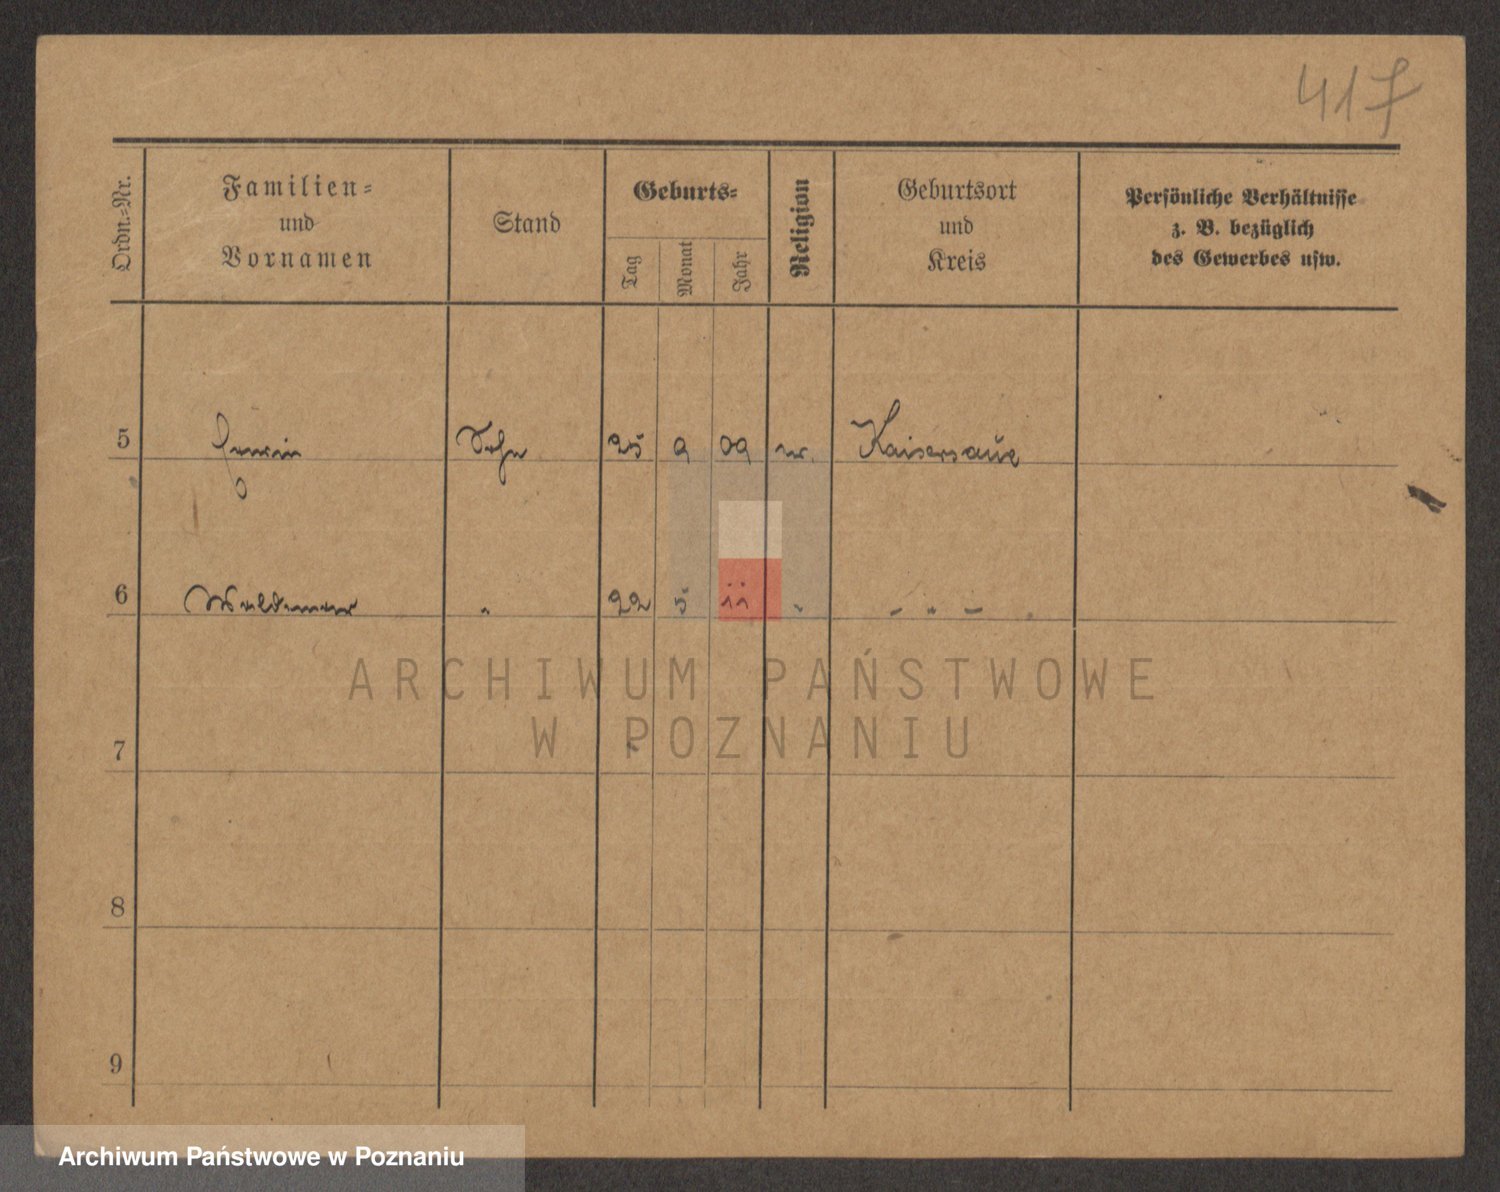 417
Ordn.-Nr.
Familien-
und
Vornamen
Stand
Geburts-
Tag
Monat
Jahr
Religion
Geburtsort
und
Kreis
Persönliche Verhältnisse
z. B. bezüglich
des Gewerbes usw.
5 Erwin Sohn 25 9 09 ev. Kaisersaue
6 Waldemar " 22 5 11 " - " -
ARCHIWUM PAŃSTWOWE
W POZNANIU
7
8
9
Archiwum Państwowe w Poznaniu